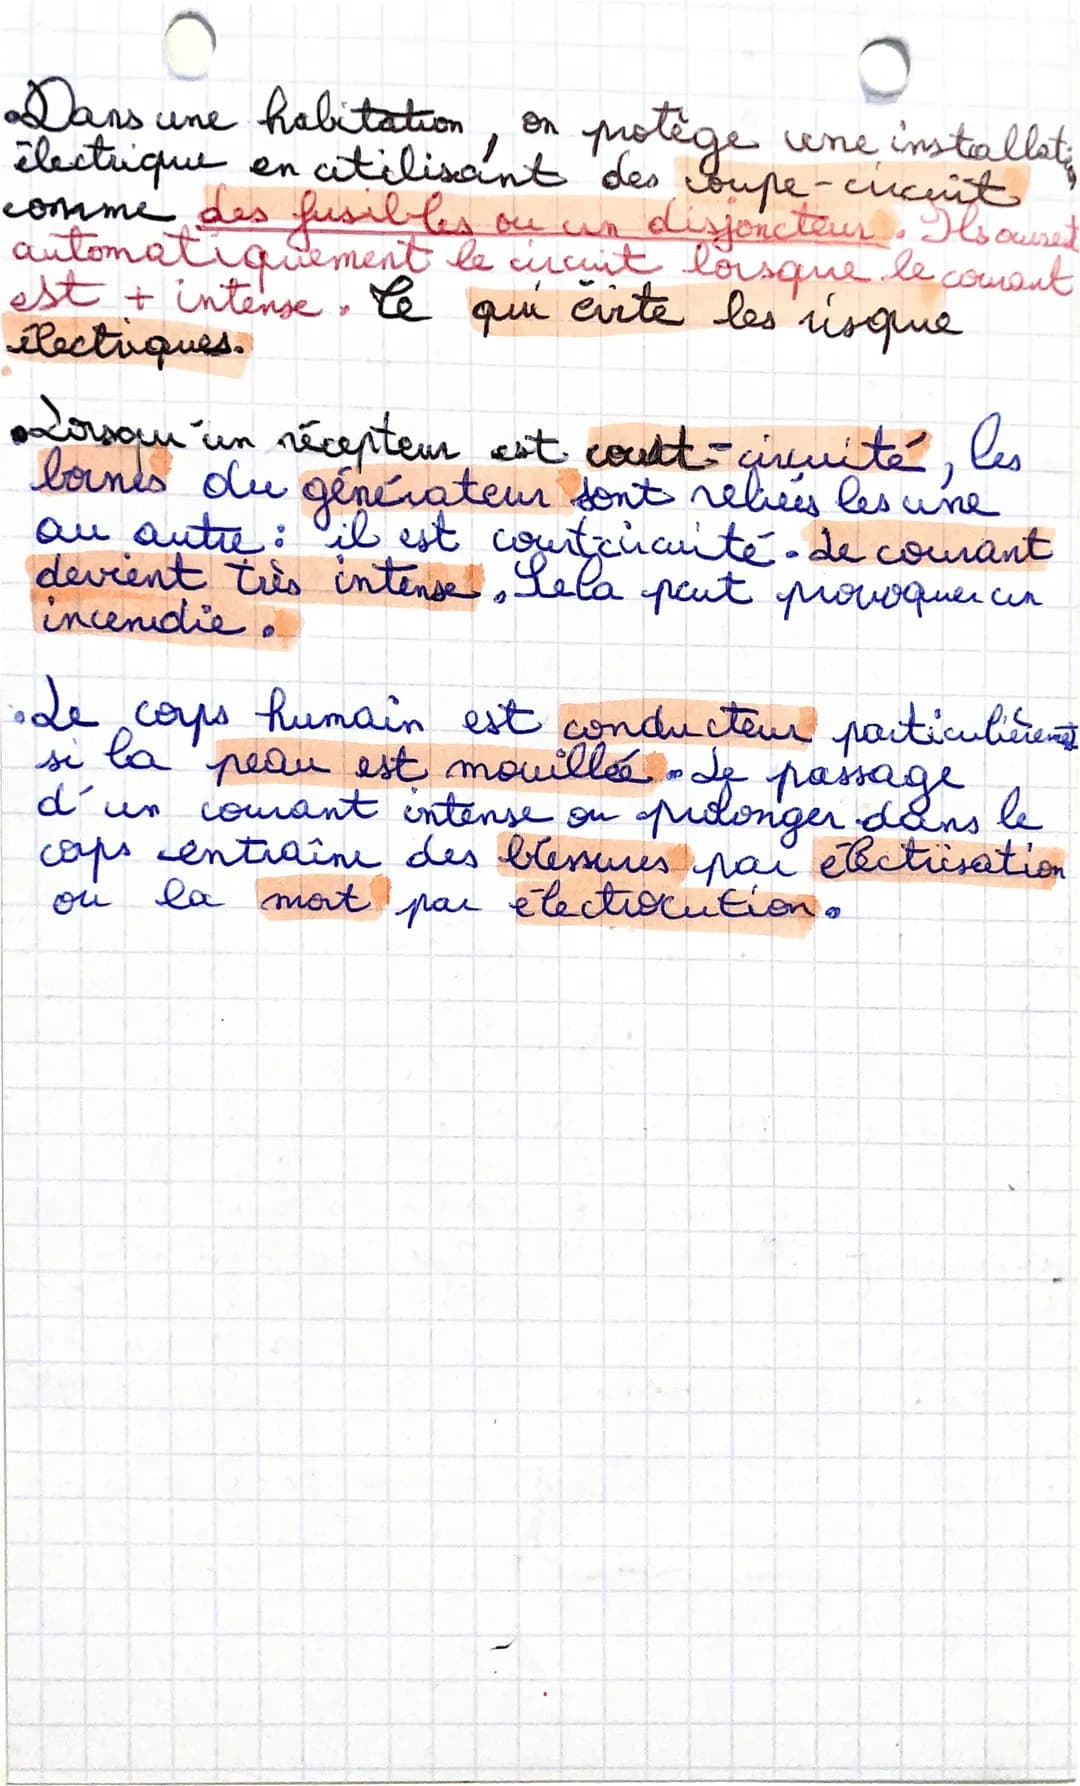 • Dans une habitation, on protège une installation
électrique en utilisant des coupe-circuit
comme des fusibles ou un disjoncteur. Ils ouvrent
automatiquement le circuit lorsque le courant
est + intense. Ce qui évite les risque
électriques.
• Lorsqu'un récepteur est court-circuité, les
bornes du générateur sont reliées les une
au autre : il est court-circuité. Le courant
devient très intense. Cela peut provoquer un
incendie.
• Le corps humain est conducteur particulièrement
si la peau est mouillée. Le passage
d'un courant intense ou prolonger dans le
corps entraîne des blessures par électrisation
ou la mort par électrocution.